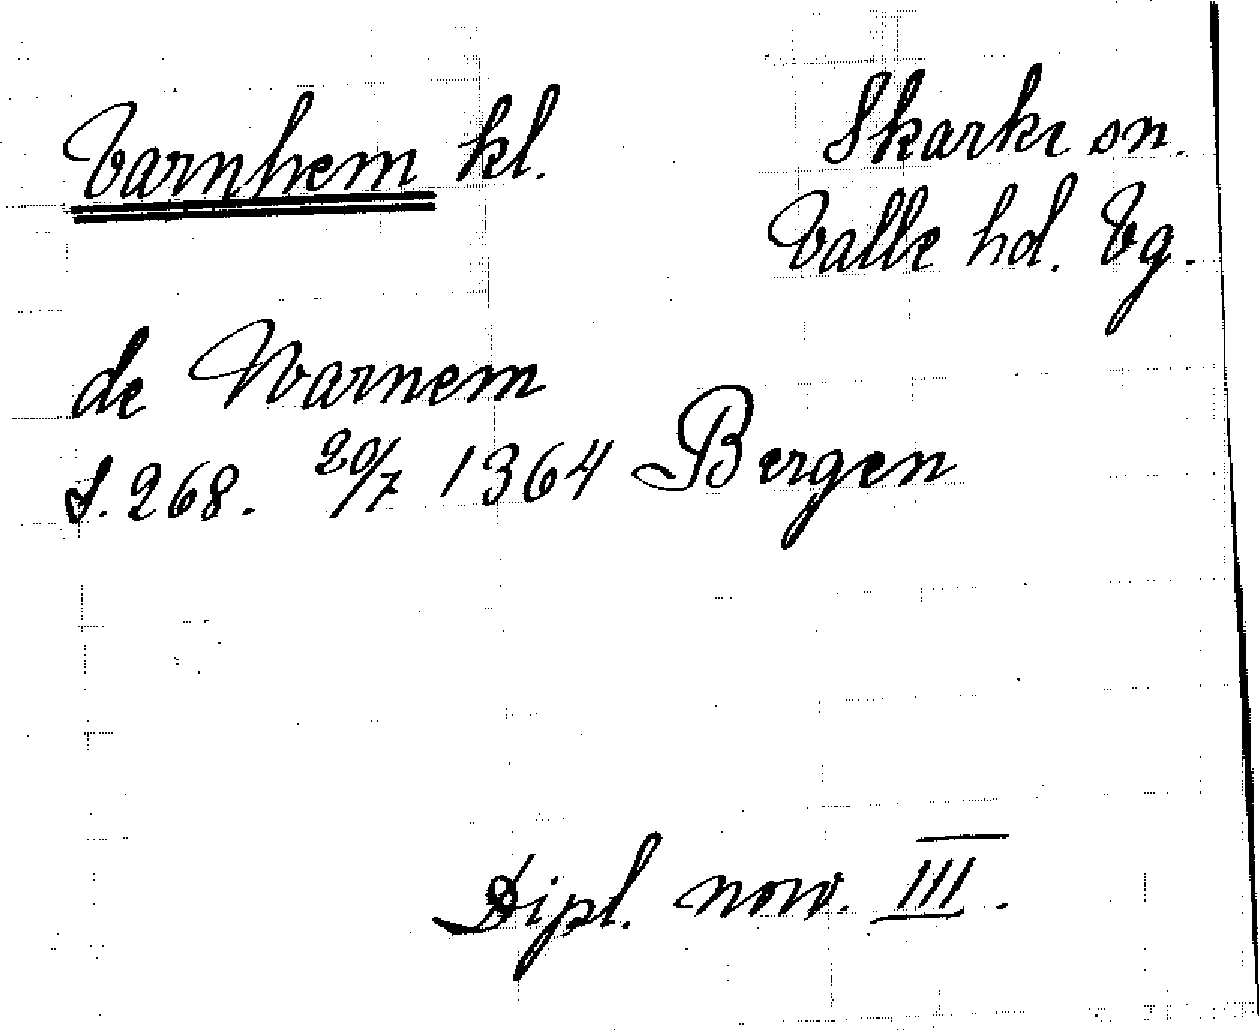 Varnhem kl.
Skarke sn.
Valle hd. Vg.
de Warnem
s. 268. 20/7 1364 Bergen
Dipl. norv. III.